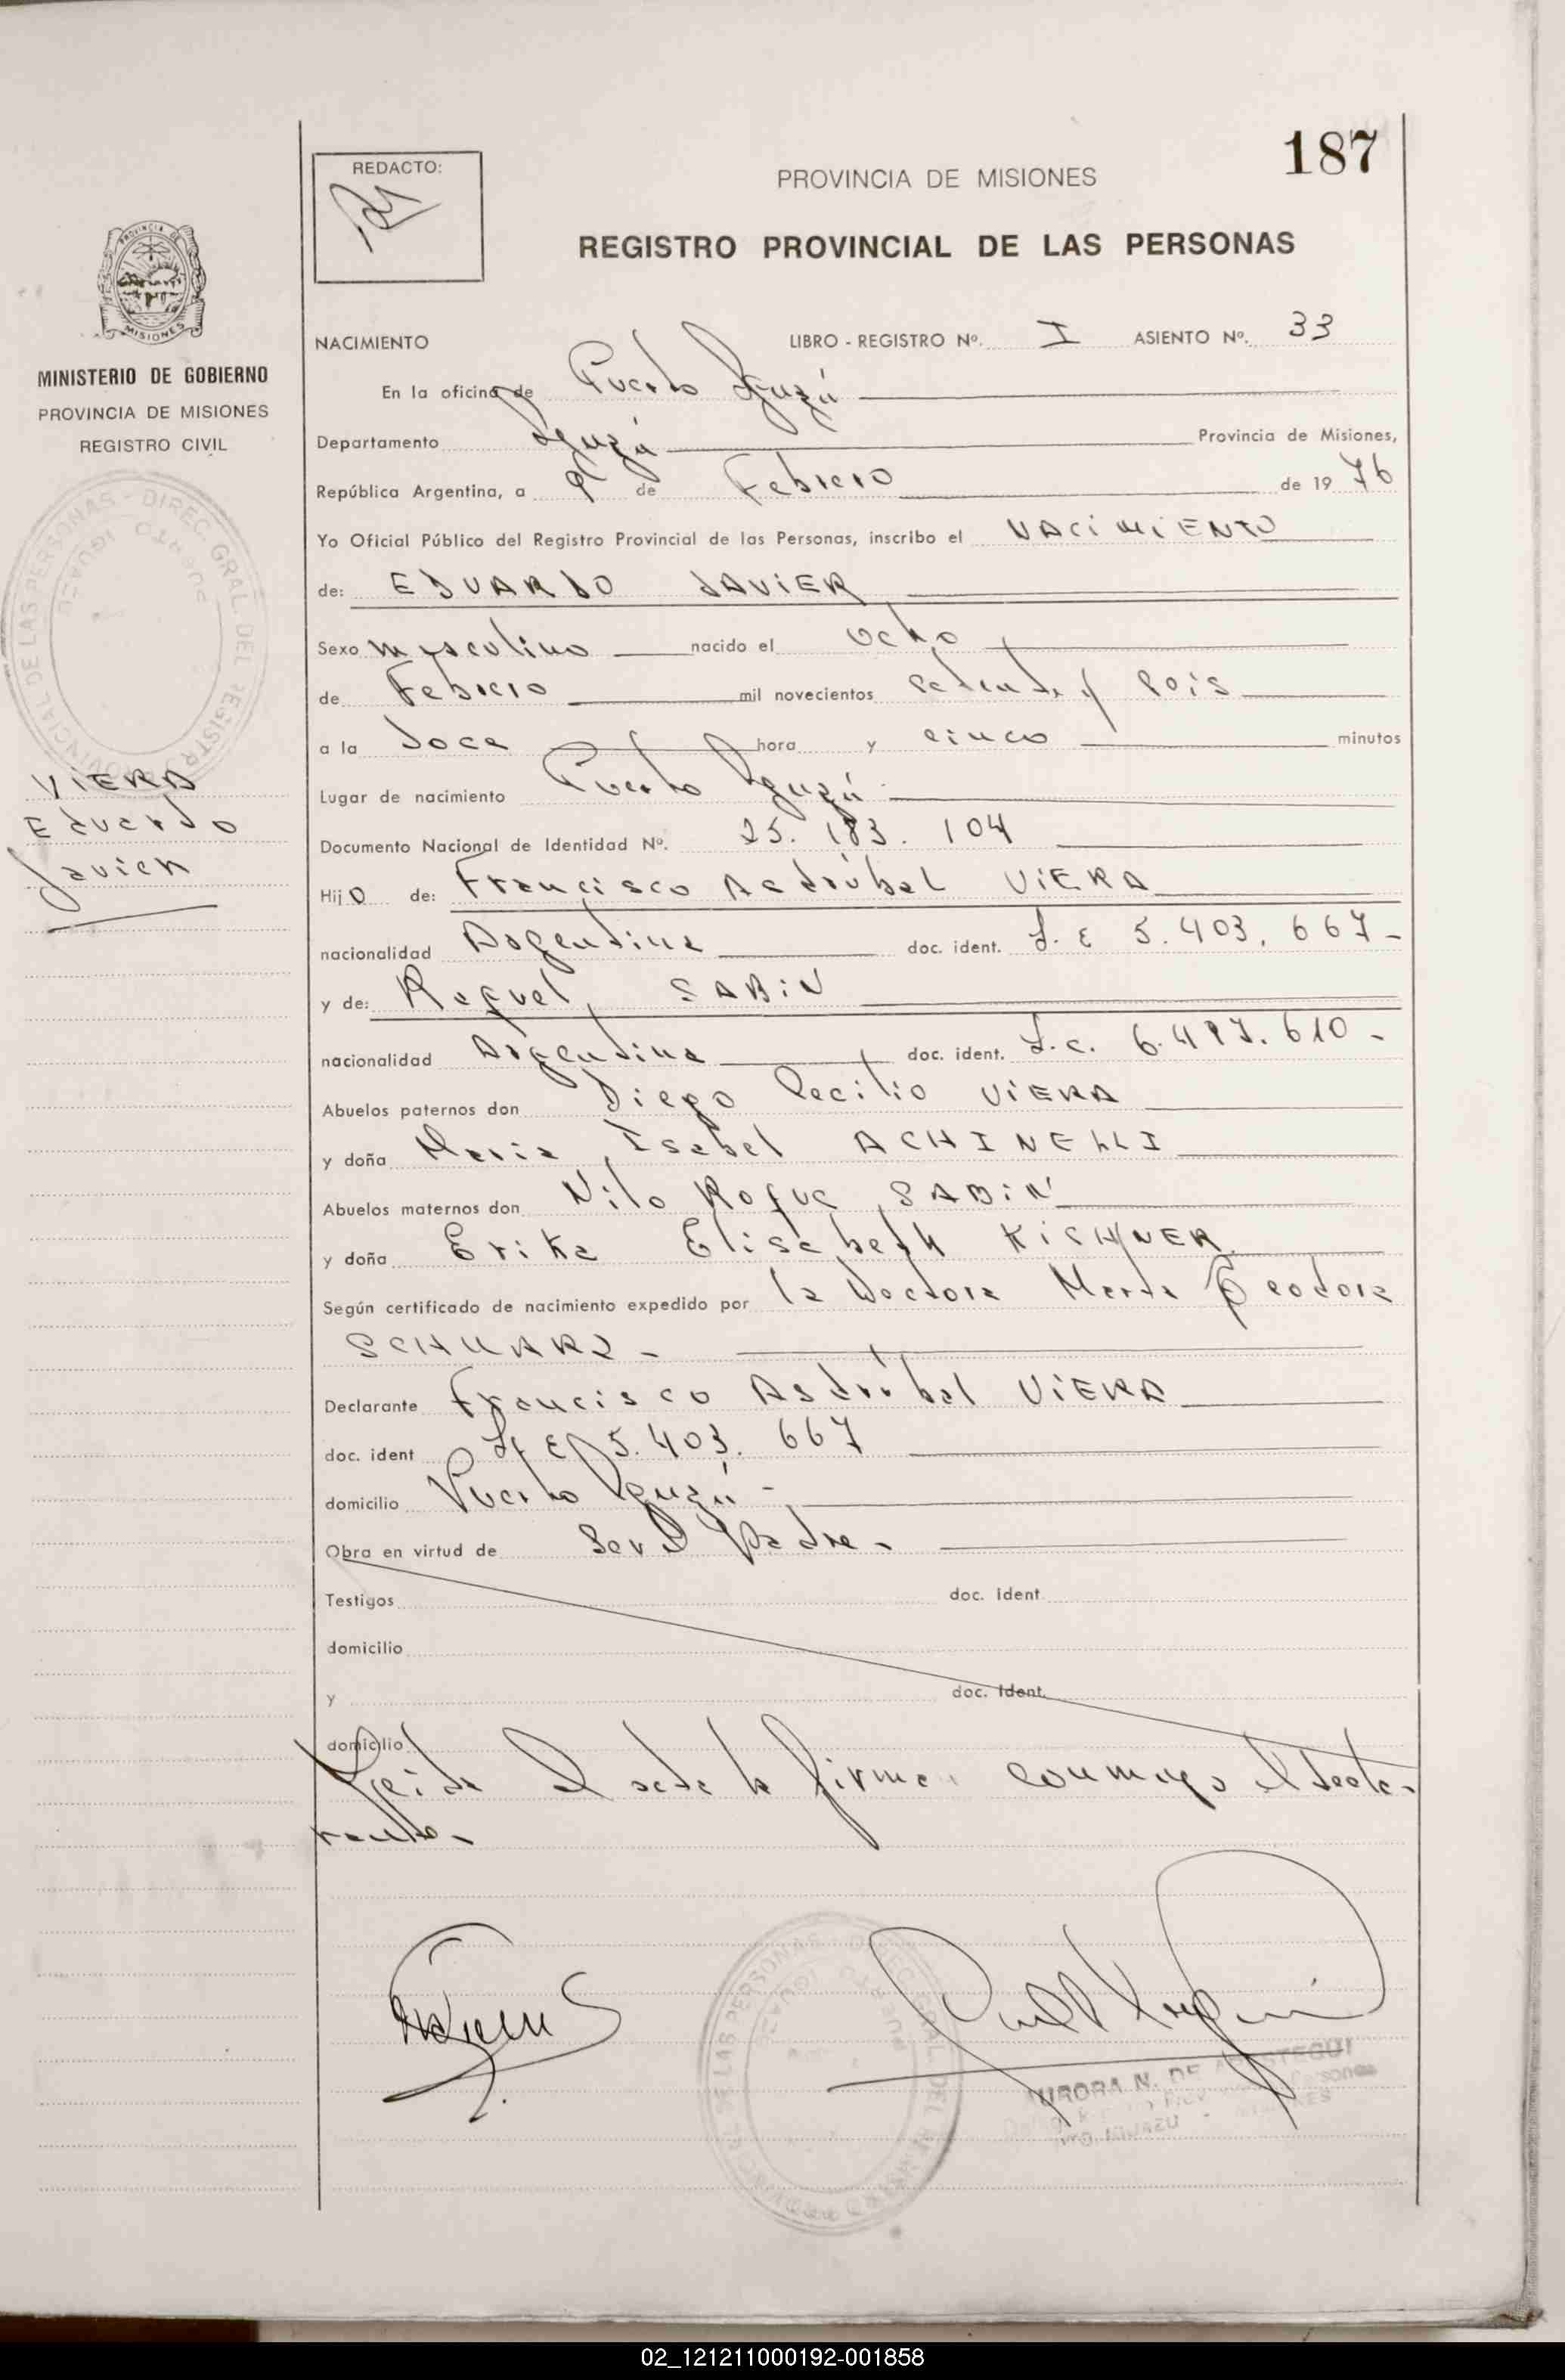 187
REDACTO:
PROVINCIA DE MISIONES
REGISTRO PROVINCIAL DE LAS PERSONAS
PROVINCIA DE
MISIONES
MINISTERIO DE GOBIERNO
PROVINCIA DE MISIONES
REGISTRO CIVIL
VIERA
Eduardo
Javier
NACIMIENTO LIBRO - REGISTRO Nº. I ASIENTO Nº. 33
En la oficina de Puerto Iguazú
Departamento Iguazú Provincia de Misiones,
República Argentina, a 9 de Febrero de 1976
Yo Oficial Público del Registro Provincial de las Personas, inscribo el NACIMIENTO
de: EDUARDO JAVIER
Sexo masculino nacido el ocho
de Febrero mil novecientos setenta y seis
a la doce hora y cinco minutos
Lugar de nacimiento Puerto Iguazú
Documento Nacional de Identidad Nº. 25.183.104
Hijo de: Francisco Asdrúbal VIERA
nacionalidad Argentina doc. ident. L.E 5.403.667-
y de: Raquel SABIN
nacionalidad Argentina doc. ident. L.C. 6.497.610-
Abuelos paternos don Diego Cecilio VIERA
y doña Maria Isabel ACHINELLI
Abuelos maternos don Nilo Roque SABIN
y doña Erika Elisabeth KISHNER
Según certificado de nacimiento expedido por la Doctora Marta Teodora
SCHWARZ-
Declarante Francisco Asdrúbal VIERA
doc. ident L.E 5.403.667
domicilio Puerto Iguazú-
Obra en virtud de Ser el Padre-
Testigos doc. ident.
domicilio
y doc. ident.
domicilio
Leida el acta la firma conmigo el decla-
rante-
AURORA N. DE
PTO. IGUAZU - MISIONES
02_121211000192-001858